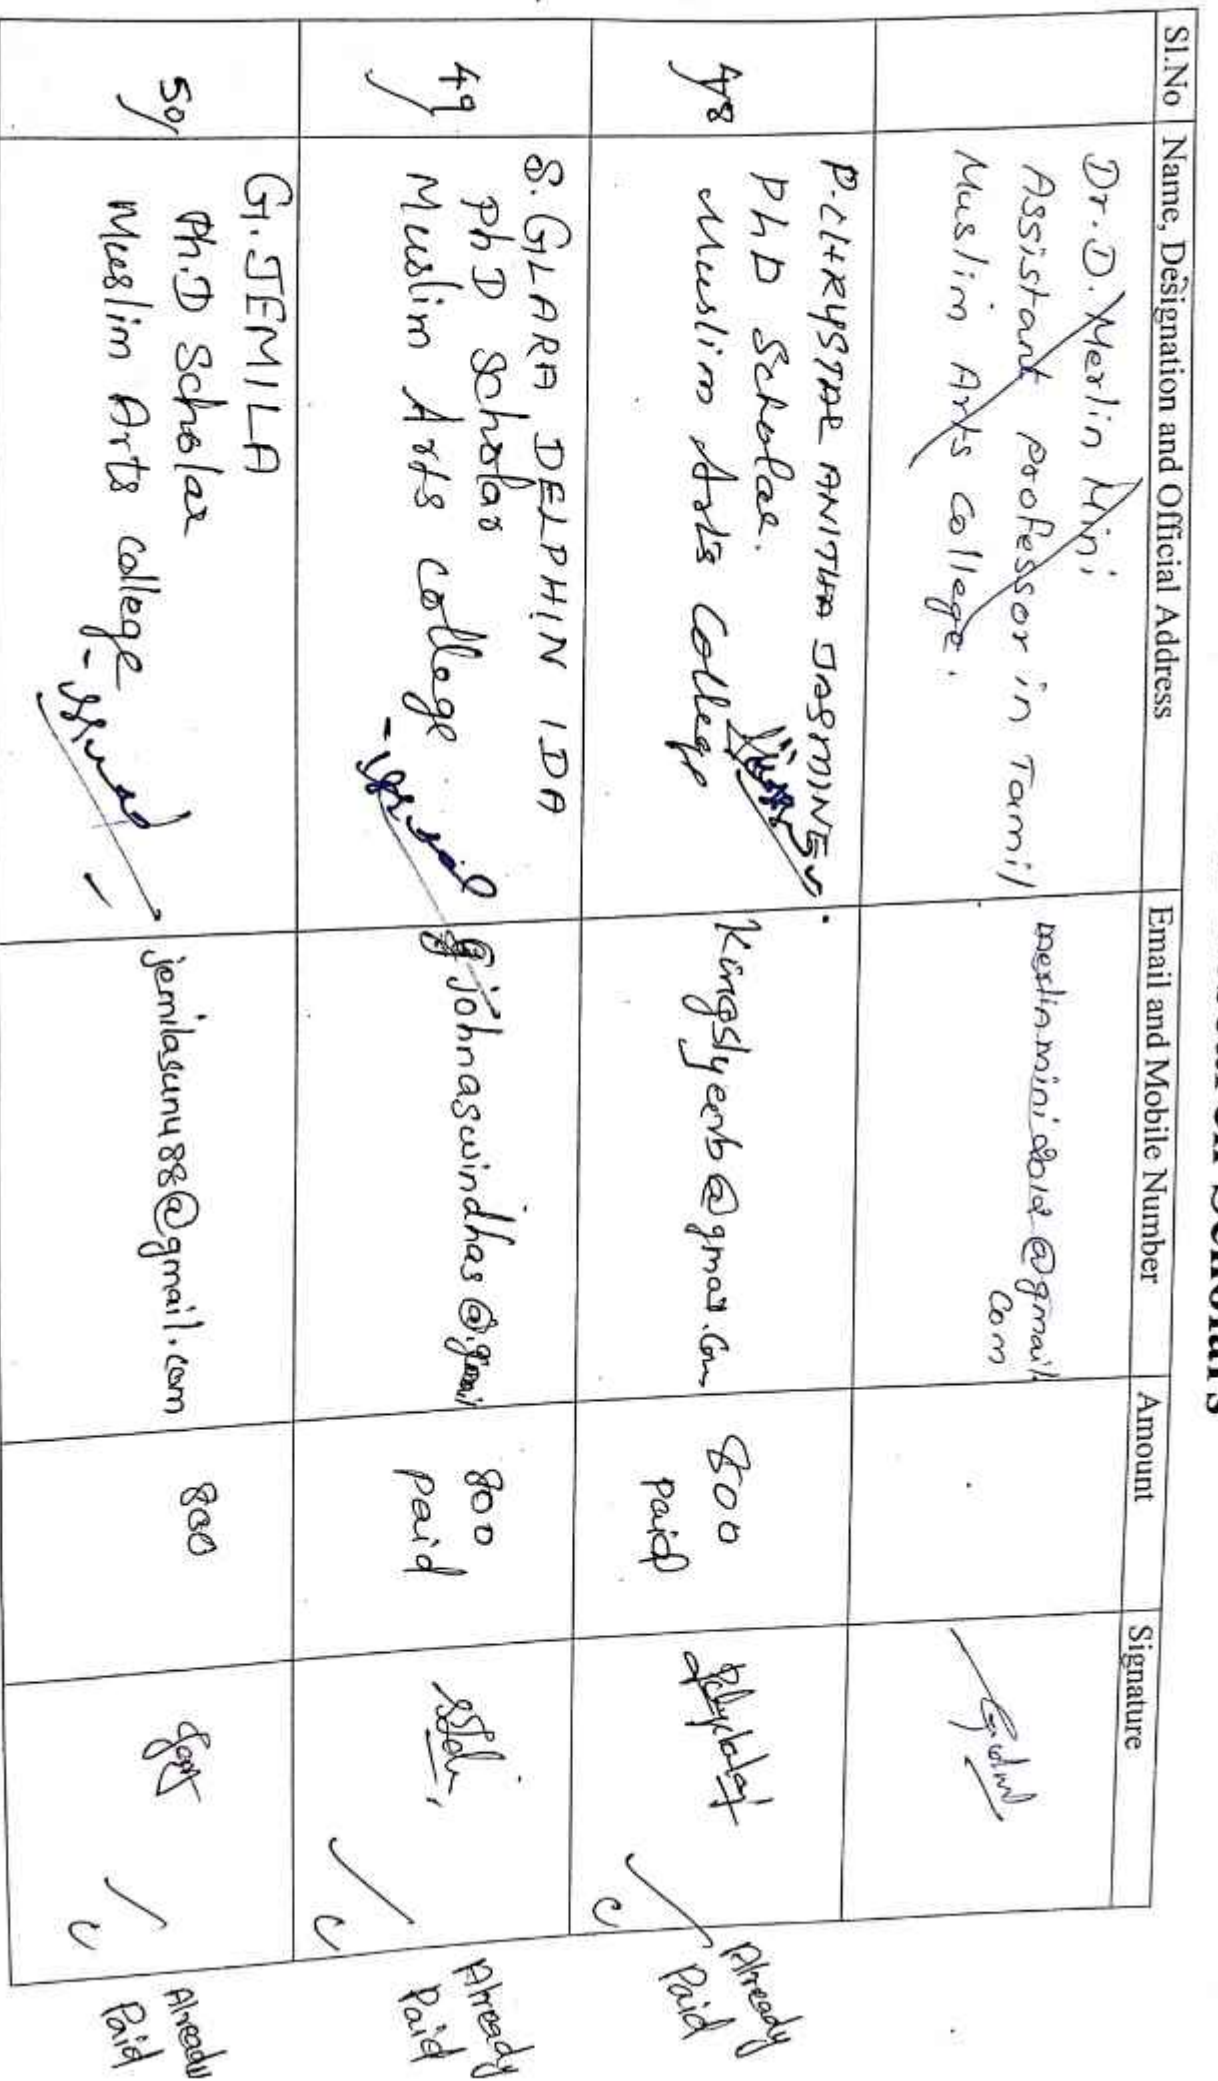 Scholars
Sl.No Name, Designation and Official Address Email and Mobile Number Amount Signature
Dr. D. Merlin Mini
Assistant professor in Tamil
Muslim Arts college.
merlinmini2012@gmail.
com
48
P. CHRYSTAL ANITHA JASMINE
PhD Scholar.
Muslim Arts College
800
paid
Already
Paid
49
S. GLARA DELPHIN IDA
PhD Scholar
Muslim Arts college
- Issued
johnaswindhas@gmail
800
paid
Already
Paid
50
G. JEMILA
Ph.D Scholar
Muslim Arts college
- Issued
jemilasunu88@gmail.com
800
Already
Paid